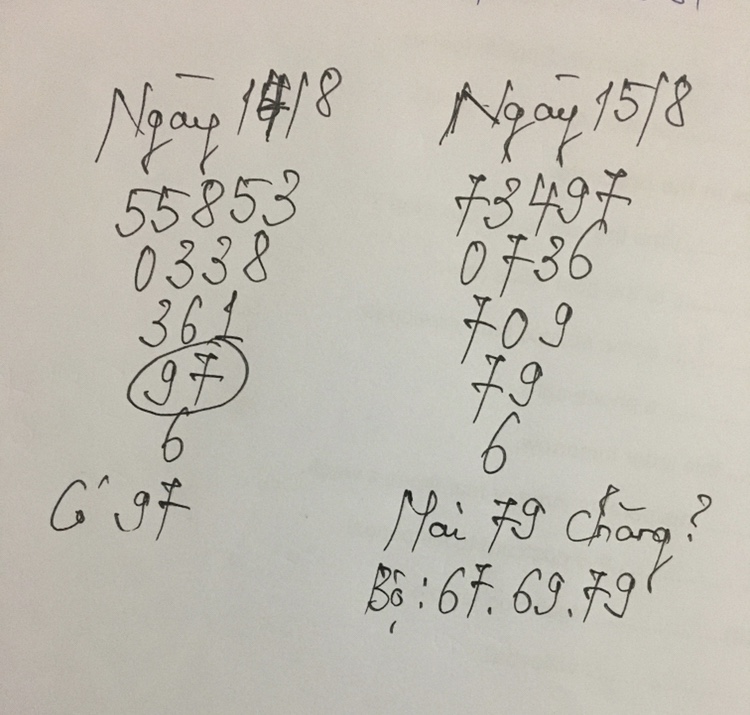 Ngày 14/8
55853
0338
361
97
6
Có 97
Ngày 15/8
73497
0736
709
79
6
Mai 79 chăng?
Bộ: 67. 69. 79